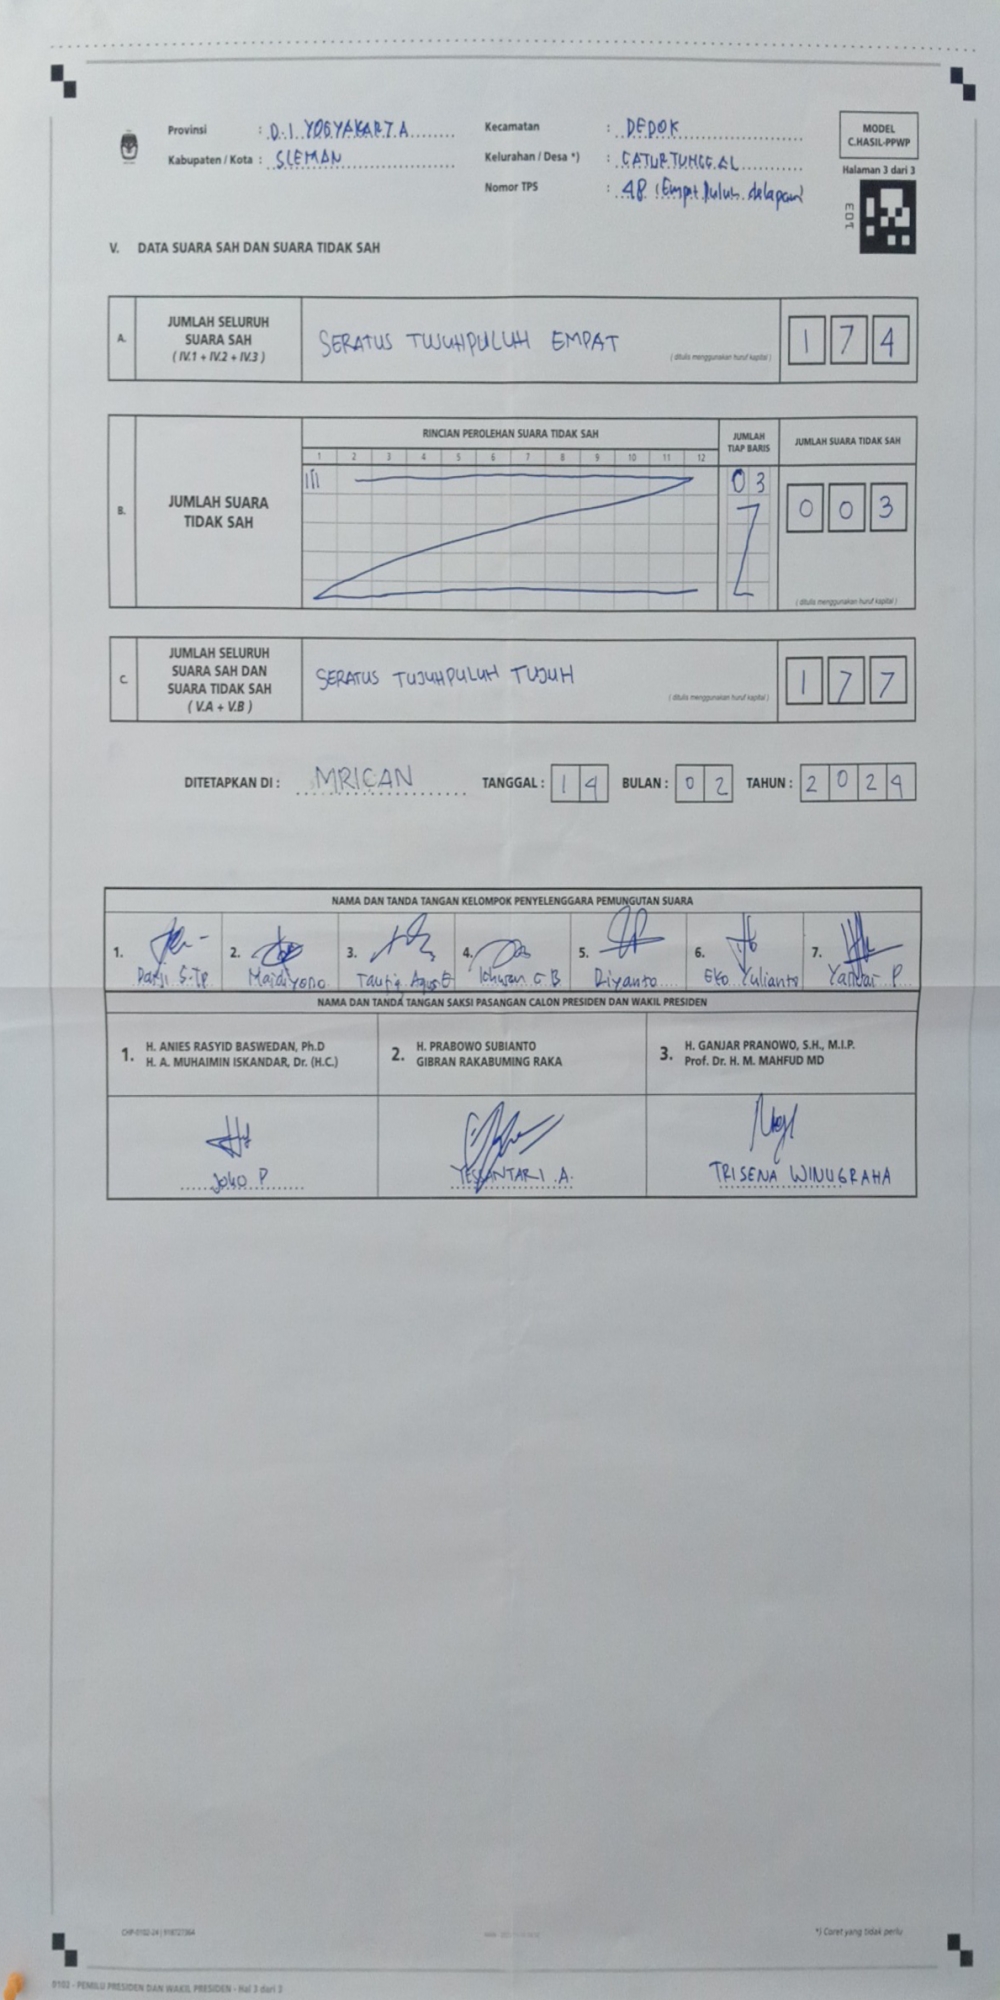 Provinsi : D.I. YOGYAKARTA
Kabupaten / Kota : SLEMAN
Kecamatan : DEPOK
Kelurahan / Desa *) : CATURTUNGGAL
Nomor TPS : 48 (Empat Puluh delapan)
MODEL
C.HASIL-PPWP
Halaman 3 dari 3
E01
V. DATA SUARA SAH DAN SUARA TIDAK SAH
A. JUMLAH SELURUH
SUARA SAH
( IV.1 + IV.2 + IV.3 )
SERATUS TUJUHPULUH EMPAT
( ditulis menggunakan huruf kapital )
1 7 4
B. JUMLAH SUARA
TIDAK SAH
RINCIAN PEROLEHAN SUARA TIDAK SAH
1 2 3 4 5 6 7 8 9 10 11 12
JUMLAH
TIAP BARIS
03
JUMLAH SUARA TIDAK SAH
0 0 3
( ditulis menggunakan huruf kapital )
C. JUMLAH SELURUH
SUARA SAH DAN
SUARA TIDAK SAH
( V.A + V.B )
SERATUS TUJUHPULUH TUJUH
( ditulis menggunakan huruf kapital )
1 7 7
DITETAPKAN DI : MRICAN TANGGAL : 14 BULAN : 02 TAHUN : 2024
NAMA DAN TANDA TANGAN KELOMPOK PENYELENGGARA PEMUNGUTAN SUARA
1. 2. 3. 4. 5. 6. 7.
S.TP Maidiyono Taufiq Agus Ichwan G B Riyanto Eko Yulianto P
NAMA DAN TANDA TANGAN SAKSI PASANGAN CALON PRESIDEN DAN WAKIL PRESIDEN
1. H. ANIES RASYID BASWEDAN, Ph.D
H. A. MUHAIMIN ISKANDAR, Dr. (H.C.)
2. H. PRABOWO SUBIANTO
GIBRAN RAKABUMING RAKA
3. H. GANJAR PRANOWO, S.H., M.I.P.
Prof. Dr. H. M. MAHFUD MD
Joko P
A.
TRISENA WINUGRAHA
*) Coret yang tidak perlu
0102 - PEMILU PRESIDEN DAN WAKIL PRESIDEN - Hal 3 dari 3